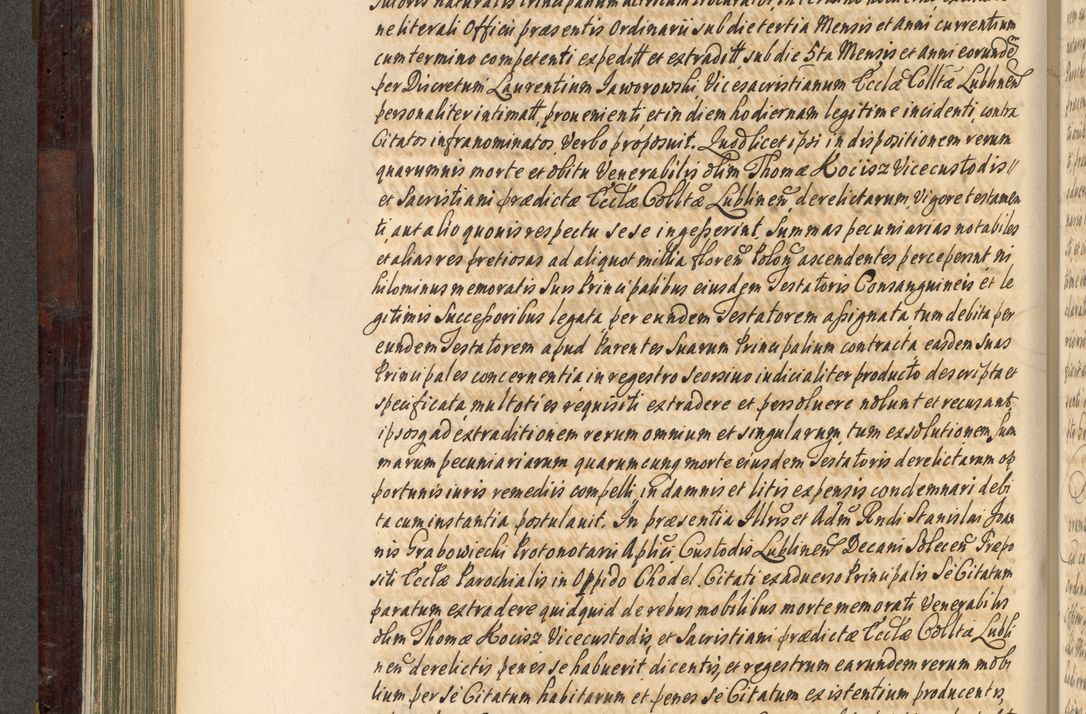 ne literali Officii præsentis Ordinarii sub die tertia Mensis et Anni currentium
cum termino competenti expeditt et extraditt sub die 5ta Mensis et anni eorundē
per Discretum Laurentium Jaworowski, Vicesacristianum Ecclæ Colltæ Lublineñ
personaliter intimatt, prouenienti, et in diem hodiernam legitime incidenti, contra
Citatos infranominatos Verbo proposuit. Quod licet ipsi in dispositionem rerum
quarumuis morte et obitu Venerabilis olim Thomæ Kocisz Vicecustodis //
et Sacristiani prædictæ Ecclæ Colltæ Lublineñ derelictarum Vigore testamen
ti, aut alio quouis respectu sese ingesserint, Summas pecuniarias notabiles
et alias res pretiosas ad aliquot millia floreñ Poloñ ascendentes perceperint ni
hilominus memoratis Suis Principalibus eiusdem Testatoris Consanguineis et le
gitimis Successoribus legata per eundem Testatorem assignata tum debita per
eundem Testatorem apud Parentes Suarum Principalium contracta easdem Suas
Principales concernentia in regestro seorsiuo iudicialiter producto descripta et
specificata, multoties requisiti extradere et persoluere nolunt et recusant,
ipsosq ad extraditionem rerum omnium et singularum, tum exsolutionem Sum
marum pecuniariarum quarumcunq morte eiusdem Testatoris derelictarum op
portunis iuris remediis compelli, in damnis et litis expensis condemnari debi
ta cum instantia postulauit. In præsentia Illris et Adm Rndi Stanislai Joan
nis Grabowiecki Protonotarii Aplici Custodis Lublineñ Decani Soleceñ Præpo
siti Ecclæ Parochialis in Oppido Chodel Citati ex aduerso Principalis Se Citatum
paratum extradere quidquid de rebus mobilibus morte memorati Venerabilis
olim Thomæ Kocisz Vicecustodis, et Sacristiani prædictæ Ecclæ Colltæ Lubli
neñ derelictis penes se habuerit, dicentis, et regestrum earundem rerum mobi
lium per Se Citatum habitarum et penes Se Citatum existentium producentis,